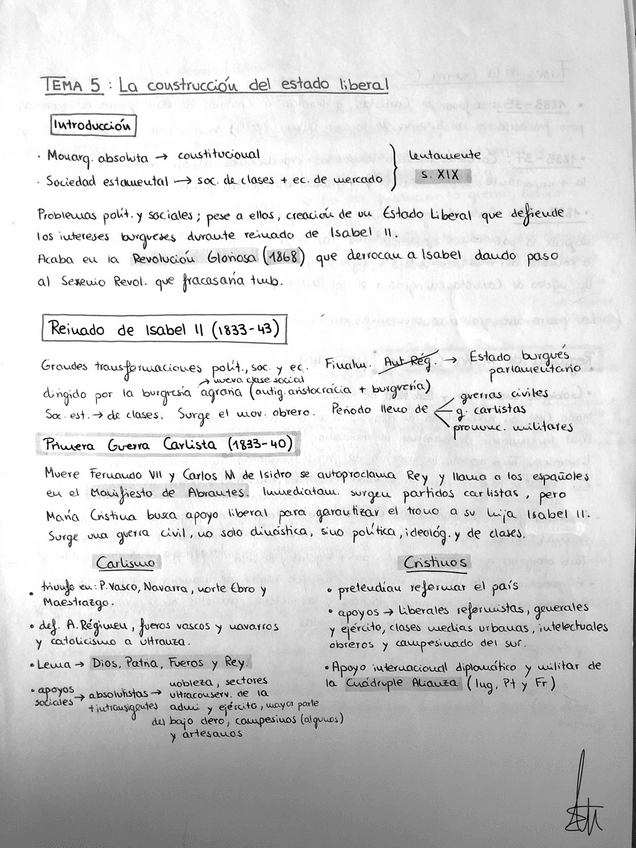 TEMA 5 : La construcción del estado liberal
Introducción
· Monarq. absoluta → constitucional
· Sociedad estamental → soc. de clases + ec. de mercado
lentamente
s. XIX
Problemas polít. y sociales ; pese a ellos, creación de un Estado Liberal que defiende
los intereses burgueses durante reinado de Isabel II.
Acaba en la Revolución Gloriosa (1868) que derrocan a Isabel dando paso
al Sexenio Revol. que fracasaría tmb.
Reinado de Isabel II (1833-43)
Grandes transformaciones polít., soc. y ec. Finalm. Ant. Rég. → Estado burgués
parlamentario
→ nueva clase social
dirigido por la burgresía agraria (antig. aristocracia + burguería)
Soc. est. → de clases. Surge el mov. obrero. Periodo lleno de
guerras civiles
g. carlistas
pronunc. militares
Primera Guerra Carlista (1833-40)
Muere Fernando VII y Carlos M de Isidro se autoproclama Rey y llama a los españoles
en el Manifiesto de Abrantes. Inmediatam. surgen partidos carlistas, pero
María Cristina busca apoyo liberal para garantizar el trono a su hija Isabel II.
Surge una guerra civil, no solo dinástica, sino política, ideológ. y de clases.
Carlismo
· triunfo en: P. Vasco, Navarra, norte Ebro y
Maestrazgo.
· def. A. Régimen, fueros vascos y navarros
y catolicismo a ultranza.
· Lema → Dios, Patria, Fueros y Rey.
· apoyos sociales → absolutistas + intransigentes → nobleza, sectores
ultraconserv. de la
adm. y ejército, mayor parte
del bajo clero, campesinos (algunos)
y artesanos
Cristinos
· pretendían reformar el país
· apoyos → liberales reformistas, generales
y ejército, clases medias urbanas, intelectuales
obreros y campesinado del sur.
· Apoyo internacional diplomático y militar de
la Cuádruple Alianza (Ing, Pt y Fr)